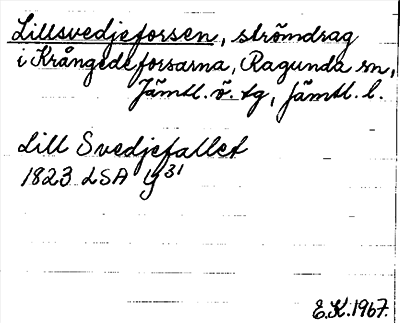 Lillsvedjeforsen, strömdrag
i Krångedeforsarna, Ragunda sn,
Jämtl. ö. tg, Jämtl. l.
Lill Svedjefallet
1823 LSA Y31
E.K. 1967.